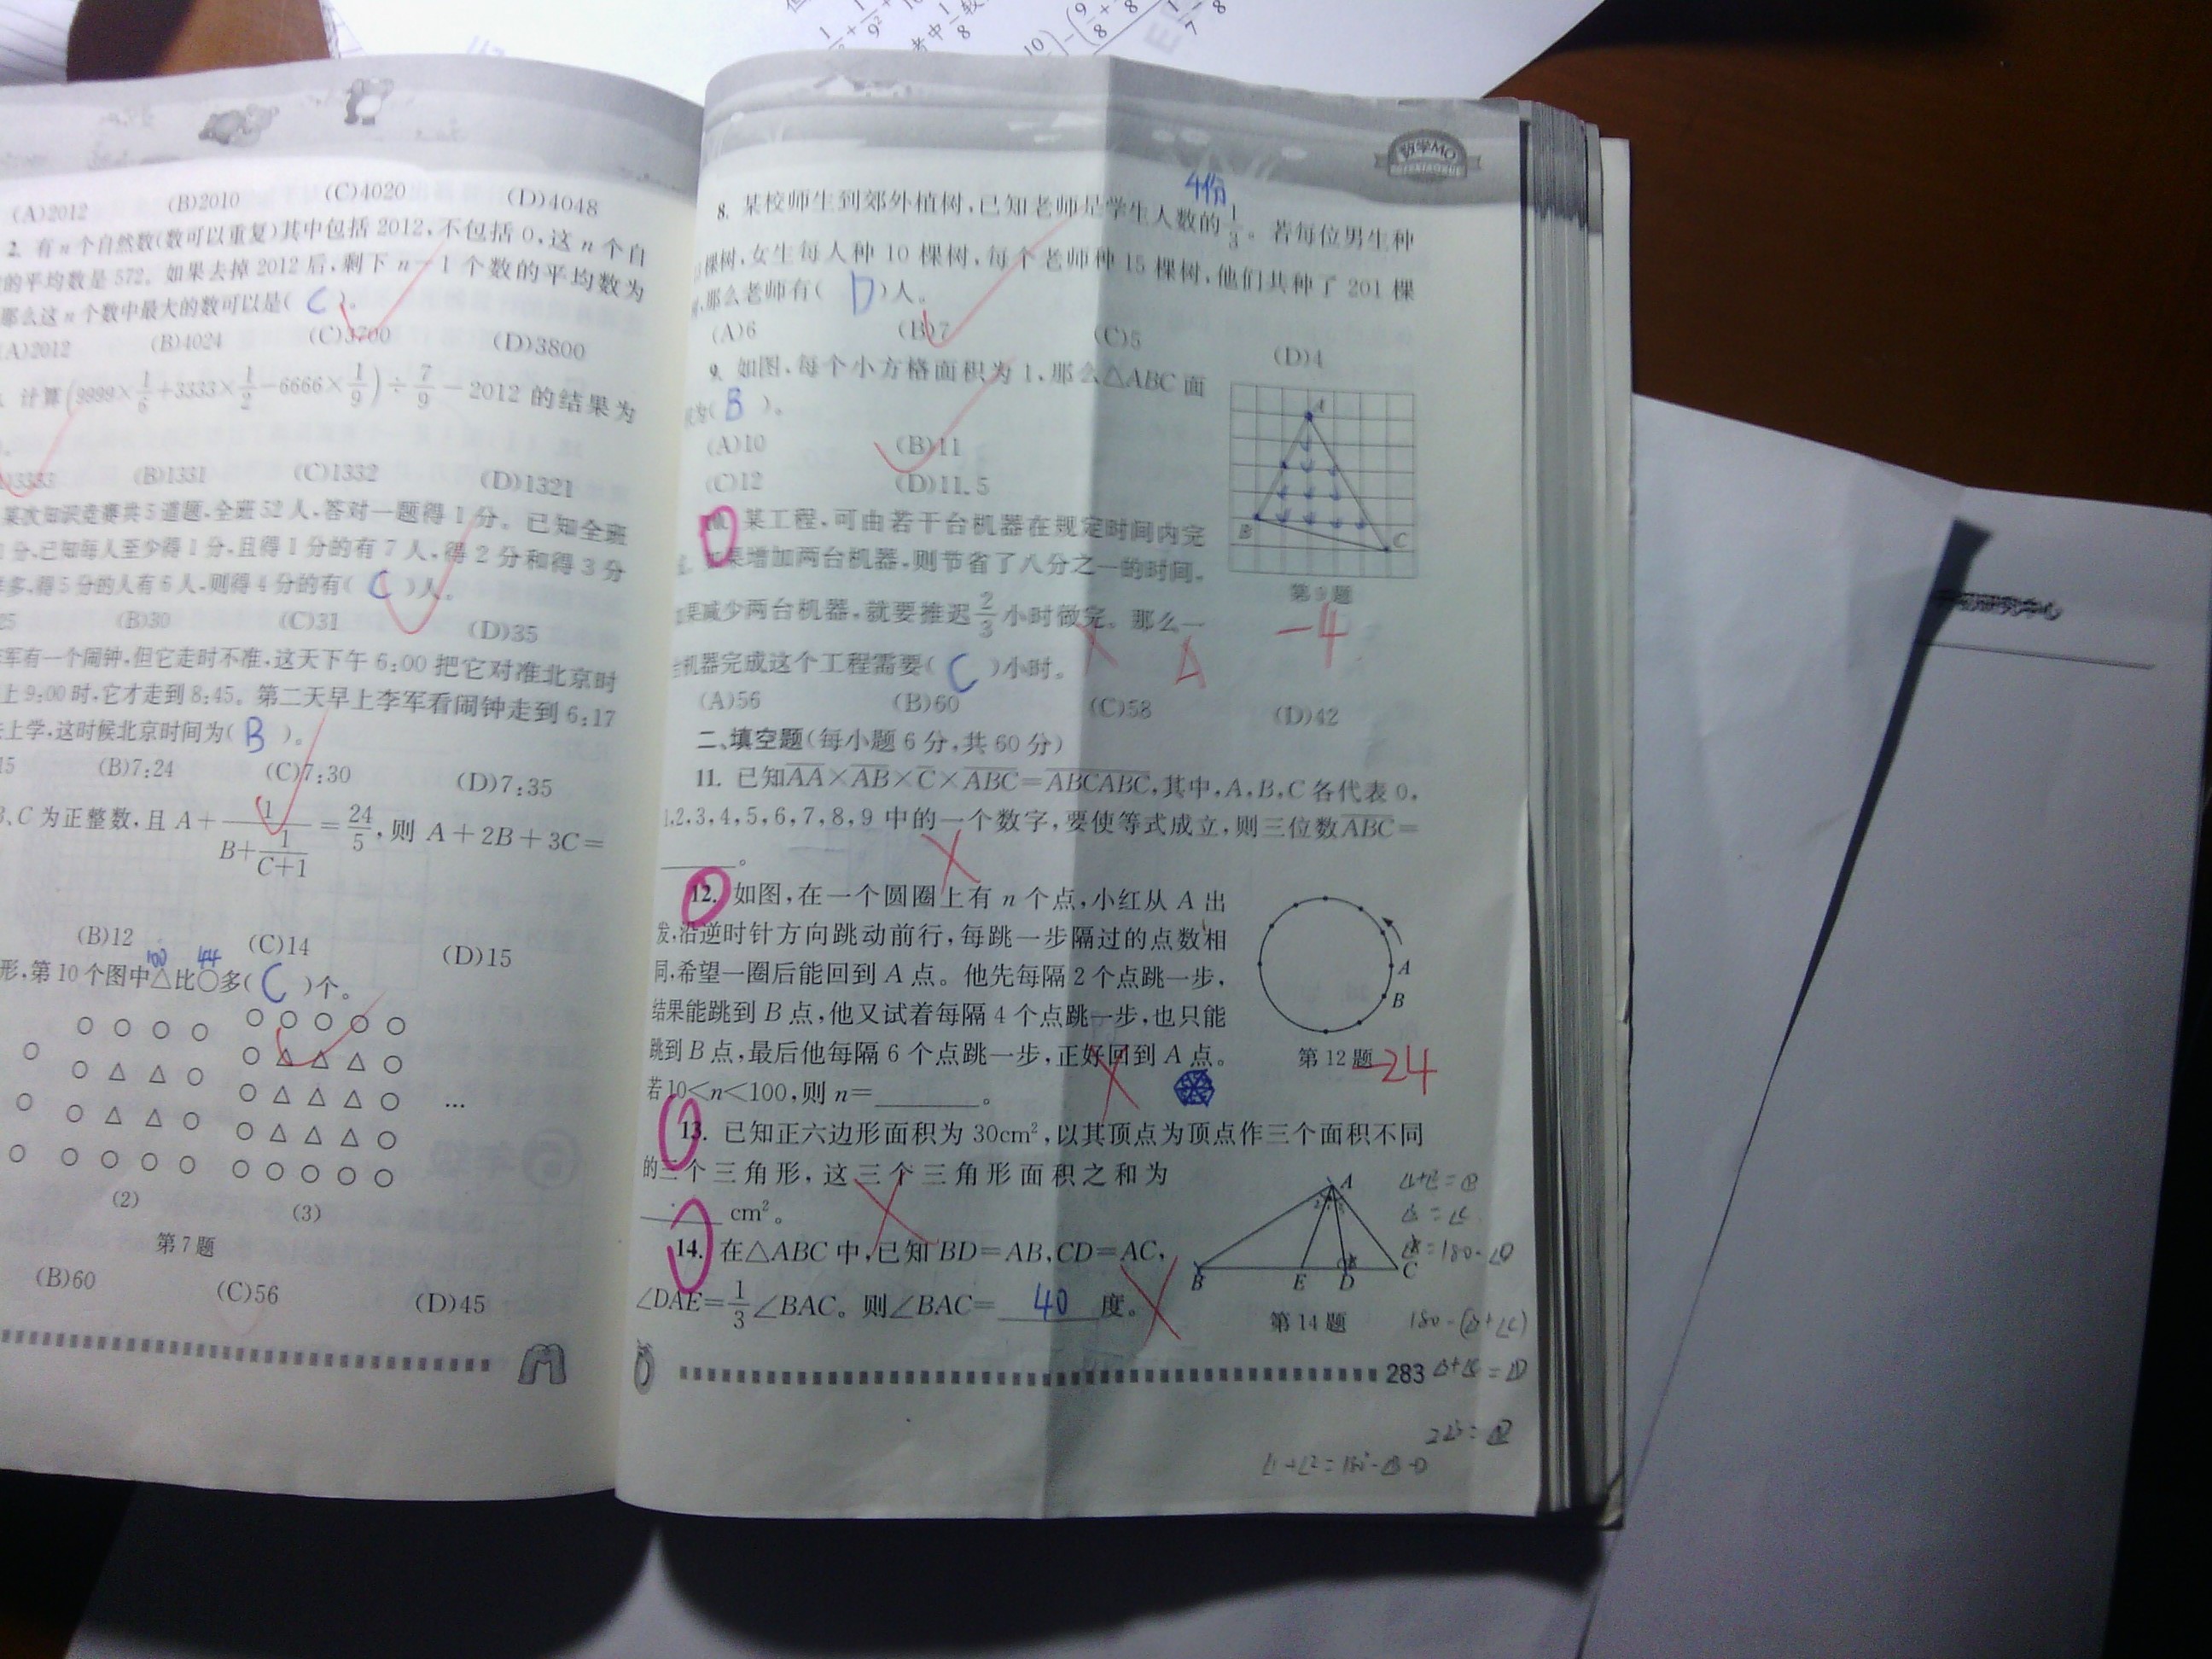 (A)2012 (B)2010 (C)4020 (D)4048
2. 有n个自然数(数可以重复)其中包括2012,不包括0,这n个自
的平均数是572。如果去掉2012后,剩下n-1个数的平均数为
那么这n个数中最大的数可以是( C )。
(A)2012 (B)4024 (C)3700 (D)3800
计算(9999×1/6+3333×1/2-6666×1/9)÷7/9-2012的结果为
3333 (B)1331 (C)1332 (D)1321
某次知识竞赛共5道题,全班52人,答对一题得1分。已知全班
分,已知每人至少得1分,且得1分的有7人,得2分和得3分
多,得5分的人有6人,则得4分的有( C )人。
25 (B)30 (C)31 (D)35
军有一个闹钟,但它走时不准,这天下午6:00把它对准北京时
上9:00时,它才走到8:45。第二天早上李军看闹钟走到6:17
上学,这时候北京时间为( B )。
15 (B)7:24 (C)7:30 (D)7:35
B、C为正整数,且A+1/(B+1/(C+1))=24/5,则A+2B+3C=
(B)12 (C)14 (D)15
形,第10个图中△比○多( C )个。
…
(2) (3)
第7题
(B)60 (C)56 (D)45
数学MO
4份
8. 某校师生到郊外植树,已知老师是学生人数的1/3。若每位男生种
棵树,女生每人种10棵树,每个老师种15棵树,他们共种了201棵
,那么老师有( D )人。
(A)6 (B)7 (C)5 (D)4
9. 如图,每个小方格面积为1,那么△ABC面
为( B )。
(A)10 (B)11
(C)12 (D)11.5
A
B
C
第9题
某工程,可由若干台机器在规定时间内完
果增加两台机器,则节省了八分之一的时间,
果减少两台机器,就要推迟2/3小时做完。那么一
台机器完成这个工程需要( C )小时。
A
-4
(A)56 (B)60 (C)58 (D)42
二、填空题(每小题6分,共60分)
11. 已知A̅A̅×A̅B̅×C̅×A̅B̅C̅=A̅B̅C̅A̅B̅C̅,其中,A,B,C各代表0,
1,2,3,4,5,6,7,8,9中的一个数字,要使等式成立,则三位数A̅B̅C̅=
______。
12. 如图,在一个圆圈上有n个点,小红从A出
发,沿逆时针方向跳动前行,每跳一步隔过的点数相
同,希望一圈后能回到A点。他先每隔2个点跳一步,
结果能跳到B点,他又试着每隔4个点跳一步,也只能
跳到B点,最后他每隔6个点跳一步,正好回到A点。
若10<n<100,则n=______。
A
B
第12题
-24
13. 已知正六边形面积为30cm²,以其顶点为顶点作三个面积不同
的三个三角形,这三个三角形面积之和为
______cm²。
14. 在△ABC中,已知BD=AB,CD=AC,
∠DAE=1/3∠BAC。则∠BAC= 40 度。
A
B E D C
第14题
283